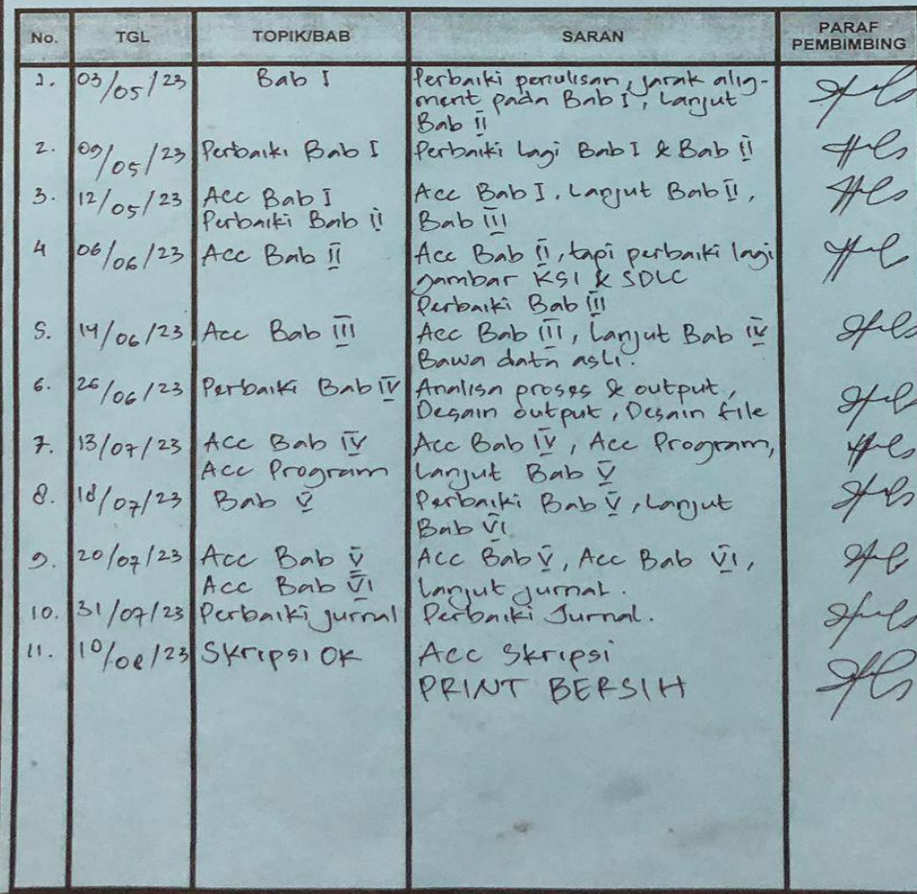 No. TGL TOPIK/BAB SARAN PARAF PEMBIMBING
1. 03/05/23 Bab I Perbaiki penulisan, jarak alig-
ment pada Bab I, Lanjut
Bab II
2. 09/05/23 Perbaiki Bab I Perbaiki lagi Bab I & Bab II
3. 12/05/23 Acc Bab I Acc Bab I, Lanjut Bab II,
Perbaiki Bab II Bab III
4 06/06/23 Acc Bab II Acc Bab II, tapi perbaiki lagi
gambar KSI & SDLC
Perbaiki Bab III
5. 14/06/23 Acc Bab III Acc Bab III, Lanjut Bab IV
Bawa data asli.
6. 26/06/23 Perbaiki Bab IV Analisa proses & output,
Desain output, Desain file
7. 13/07/23 Acc Bab IV Acc Bab IV, Acc Program,
Acc Program Lanjut Bab V
8. 18/07/23 Bab V Perbaiki Bab V, Lanjut
Bab VI
9. 20/07/23 Acc Bab V Acc Bab V, Acc Bab VI,
Acc Bab VI Lanjut jurnal.
10. 31/07/23 Perbaiki jurnal Perbaiki Jurnal.
11. 10/08/23 Skripsi OK Acc Skripsi
PRINT BERSIH